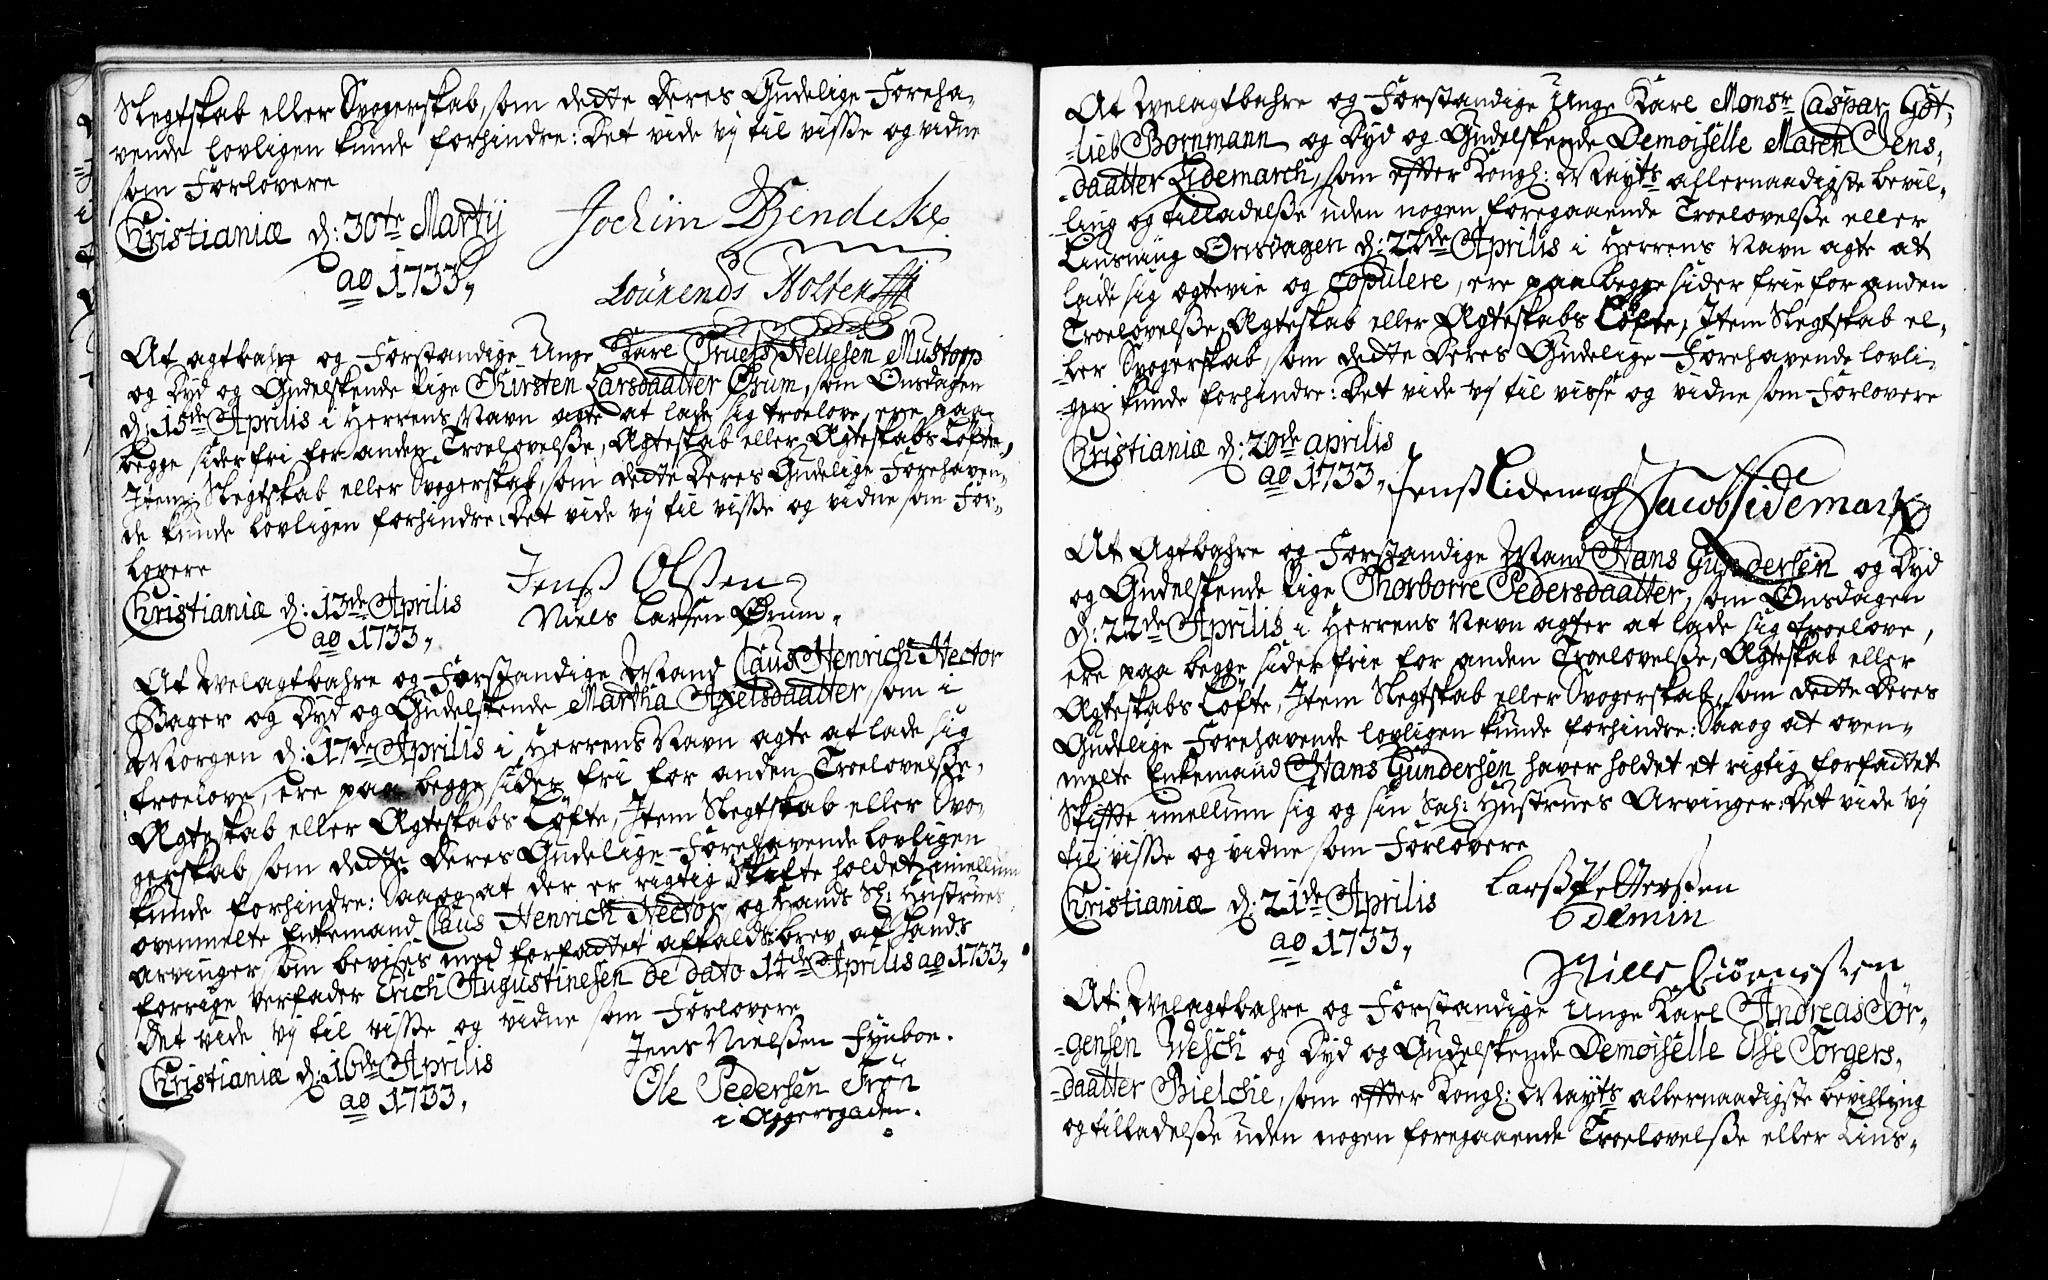 Slegtskab eller Svogerskab, som dette deres Gudelige Foreha-
vende lovligen kunde forhindre: Det vide vj til visse og vidne
som Forlovere
Christianiæ d: 30te Martij
ao 1733,
Jochim Bendeke
Lourends Holter
At agtbahre og Forstandige Unge Karl Truels Hellesen Mustorp
og Dyd og Gudelskende Pige Kirsten Larsdaatter Ørum, som Onsdagen
d: 15de Aprilis i Herrens Navn agte at lade sig troelove, ere paa
begge sider fri for anden Troelovelsse, Ægteskab eller Ægteskabs Løfte,
Item Slegtskab eller Svogerskab, som dette deres Gudelige Forehaven-
de kunde lovligen forhindre: Det vide vj til visse og vidne som For-
lovere
Christianiæ d: 13de Aprilis
ao 1733,
Jenss Olssen
Niels Larsen Ørum.
At Welagtbahre og Forstandige Mand Claus Henrich Hector
Bager og Dyd og Gudelskende Martha Axelsdaatter, som i
Morgen d: 17de Aprilis i Herrens Navn agte at lade sig
troelove, ere paa begge sider fri for anden Troelovelsse,
Ægteskab eller Ægteskabs Løfte, Item Slegtskab eller Svo-
gerskab som dette deres Gudelige Forehavende lovligen
kunde forhindre: Saa og at der er rigtig Skifte holdet imellum
ovenmelte Enkemand Claus Henrich Hector og Hands Sl: Hustrues
arvinger, som bevises med forfattet affaldsbrev af Hands
forrige Verfader Erich Augustinesen de dato 14de Aprilis ao 1733,
Det vide vj til visse og vidne som Forlovere
Christianiæ d: 16de Aprilis
ao 1733,
Jens Nielssen Fynboe.
Ole Pedersen Trøn
i Aggersgaden.
At Welagtbahre og Forstandige Unge Karl Monsr Caspar Got-
lieb Bornmann og Dyd og Gudelskende Demoiselle Maren Jens-
daatter Lidemarch, som effter Kongl: Mayts allernaadigste bevil-
ling og tilladelsse uden nogen foregaaende Troelovelsse eller
Liusning Onsdagen d: 22de Aprilis i Herrens Navn agte at
lade sig ægtevie og Copulere, ere paa begge sider frie for anden
Troelovelsse, Ægteskab eller Ægteskabs Løfte, Item Slegtskab el-
ler Svogerskab, som dette deres Gudelige Forehavende lovli-
gen kunde forhindre: Det vide vj til visse og vidne som Forlovere
Christianiæ d: 20de aprilis
ao 1733,
Jenss Lidemarch
Jacob Lidemark
At Agtbahre og Forstandige Mand Hans Gundersen og Dyd
og Gudelskende Pige Thorborre Pedersdaatter, som Onsdagen
d: 22de Aprilis i Herrens Navn agter at lade sig troelove,
ere paa begge sider frie for anden Troelovelsse, Ægteskab eller
Ægteskabs Løfte, Item Slegtskab eller Svogerskab, som dette deres
Gudelige Forehavende lovligen kunde forhindre: Saa og at oven-
melte Enkemand Hans Gundersen haver holdet et rigtig forfattet
Skiffte imellum sig og sin Sal: Hustrues Arvinger: Det vide vj
til visse og vidne som Forlovere
Christianiæ d: 21de Aprilis
ao 1733,
Larss Pettersen
Odemin
Niels Biørnssen
At Welagtbahre og Forstandige Unge Karl Andreas Jør-
gensen Wesch og Dyd og Gudelskende Demoiselle Else Torgers-
daatter Bielche, som effter Kongl: Mayts allernaadigste bevilling
og tilladelsse uden nogen foregaaende Troelovelsse eller Lius-